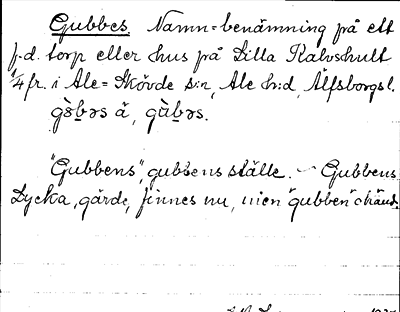 Gubbes. Namn-benämning på ett
f.d. torp eller hus på Lilla Kalvschult
1/4 fr. i Ale-Skövde s:n, Ale h:d, Älfsborgs l.
gòbəs å, gùbəs.
"Gubbens", gubbens ställe. – Gubbens
Lycka, gärde, finnes nu, men "gubben"